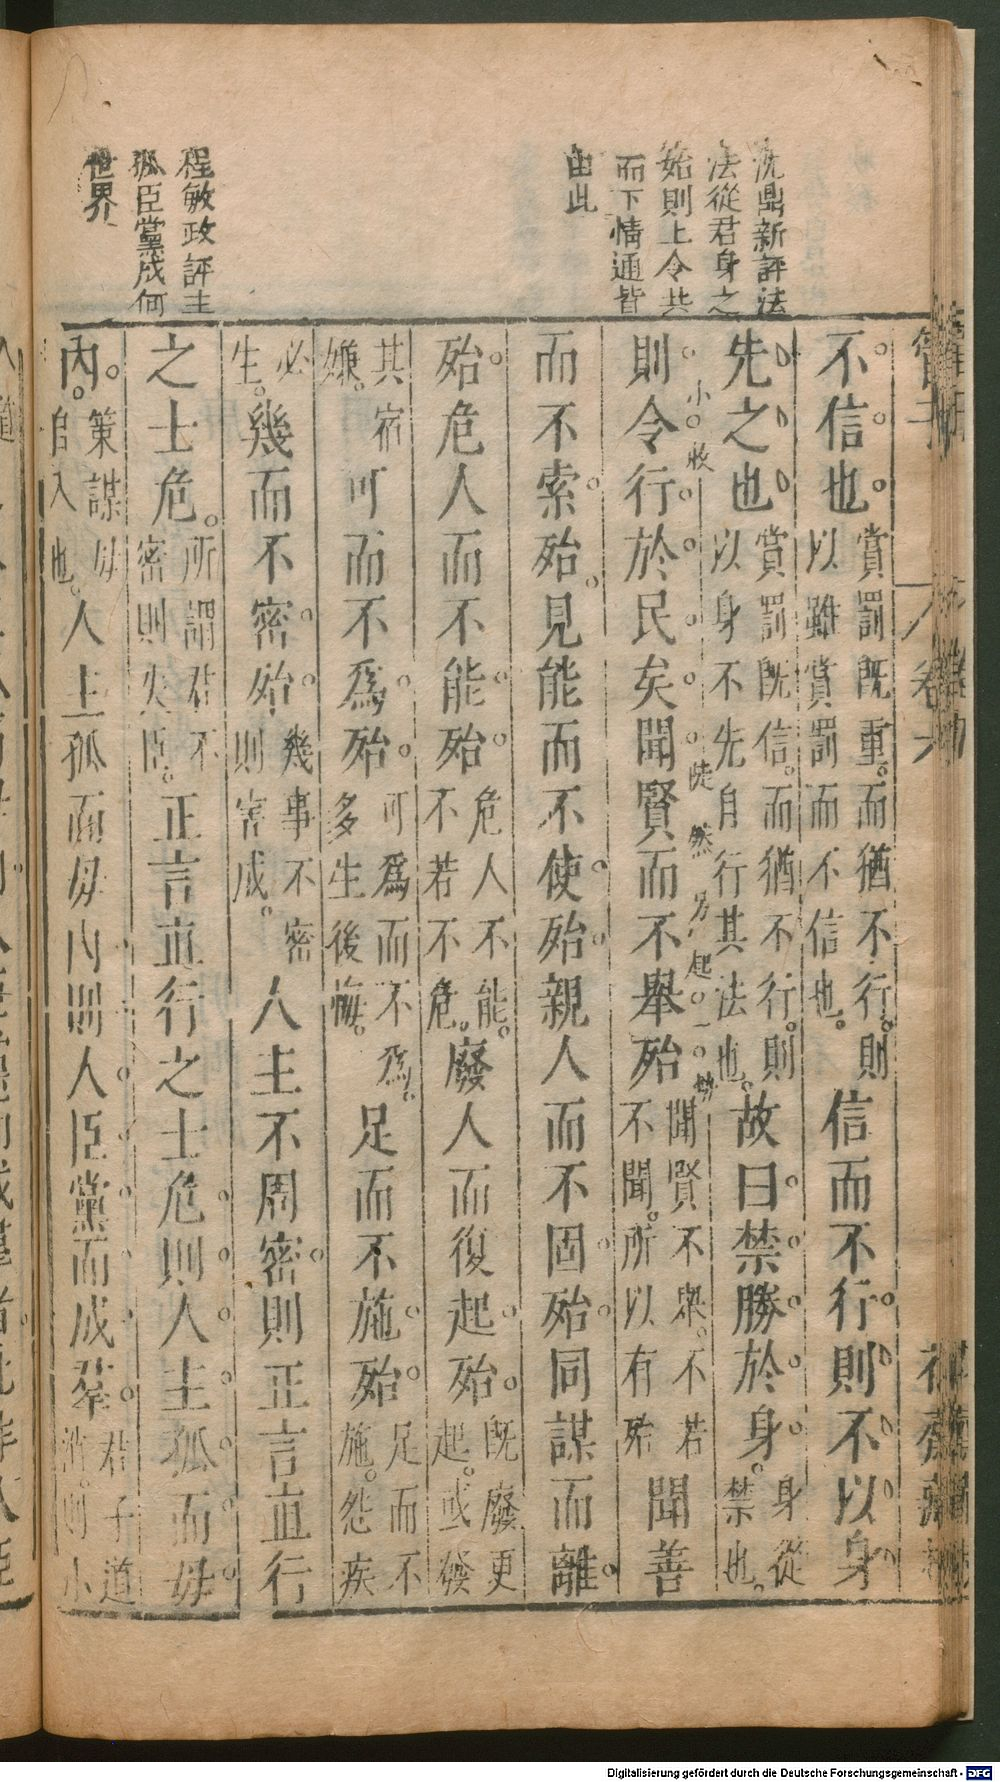 沈鼎新評法
法從君身之
始則上令共
而下情通皆
由此
程敏政評主
孤臣黨成何
世界
管子
卷六
不信也賞罰既重而猶不行則以雖賞罰而不信也信而不行則不以身
先之也賞罰既信而猶不行則以身不先自行其法也故曰禁勝於身身從禁也
則令行於民矣聞賢而不舉殆聞賢不舉不若不聞所以有殆聞善
小收
徒然
另起
而不索殆見能而不使殆親人而不固殆同謀而離
殆危人而不能殆危人不能不若不危廢人而復起殆既廢更起或發
其宿嫌可而不為殆可為而不為多生後悔足而不施殆足而不施怨疾
必生幾而不密殆幾事不密則害成人主不周密則正言直行
之士危所謂君不密則失臣正言直行之士危則人主孤而毋
內策謀毋自入也人主孤而毋內則人臣黨而成羣君子道消則小
Digitalisierung gefördert durch die Deutsche Forschungsgemeinschaft - DFG